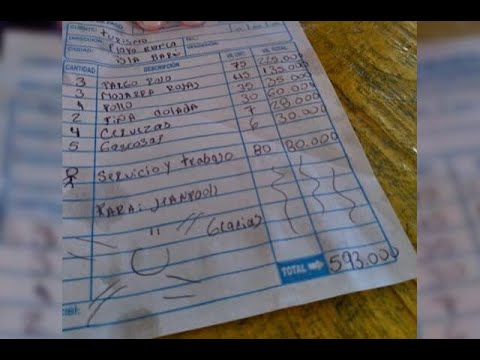 Turismo
DIRECCIÓN Playa Blanca
Isla Barú
CANTIDAD DESCRIPCIÓN VR. TOTAL
3 Pargo Rojo 75 225.000
3 Mojarra Rojas 45 135.000
1 Pollo 35 35.000
2 Piña Colada 30 60.000
4 Cervezas 7 28.000
5 Gaseosas 6 30.000
Servicio y trabajo 80 80.000
Para:
" Gracias
TOTAL 593.000